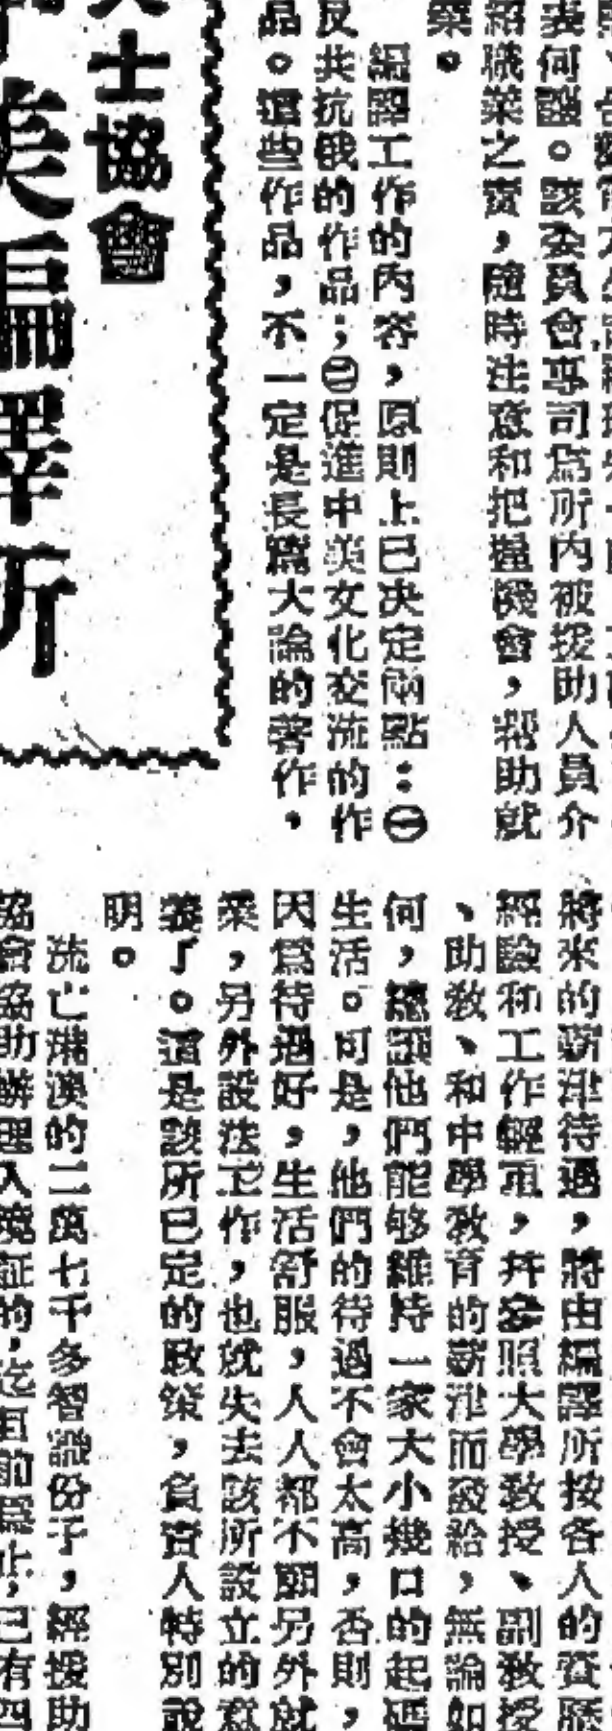 表何議。該委員會專司爲所內被援助人員介
紹職業之責，隨時注意和把握機會，幫助就
業。
編譯工作的內容，原則上已決定兩點：㊀
反共抗俄的作品；㊁促進中美文化交流的作
品。這些作品，不一定是長篇大論的著作，
士協會
美編譯所
將來的薪津待遇，將由編譯所按各人的資歷
經驗和工作輕重，并參照大學敎授、副敎授
、助敎、和中學敎育的薪津而發給，無論如
何，總讓他們能够維持一家大小幾口的起碼
生活。可是，他們的待遇不會太高，否則，
因爲待遇好，生活舒服，人人都不願另外就
業，另外設法工作，也就失去該所設立的意
義了。這是該所已定的政策，負責人特別說
明。
流亡港澳的二萬七千多智識份子，經援助
協會協助辦理入境証的，迄目前爲止，已有四